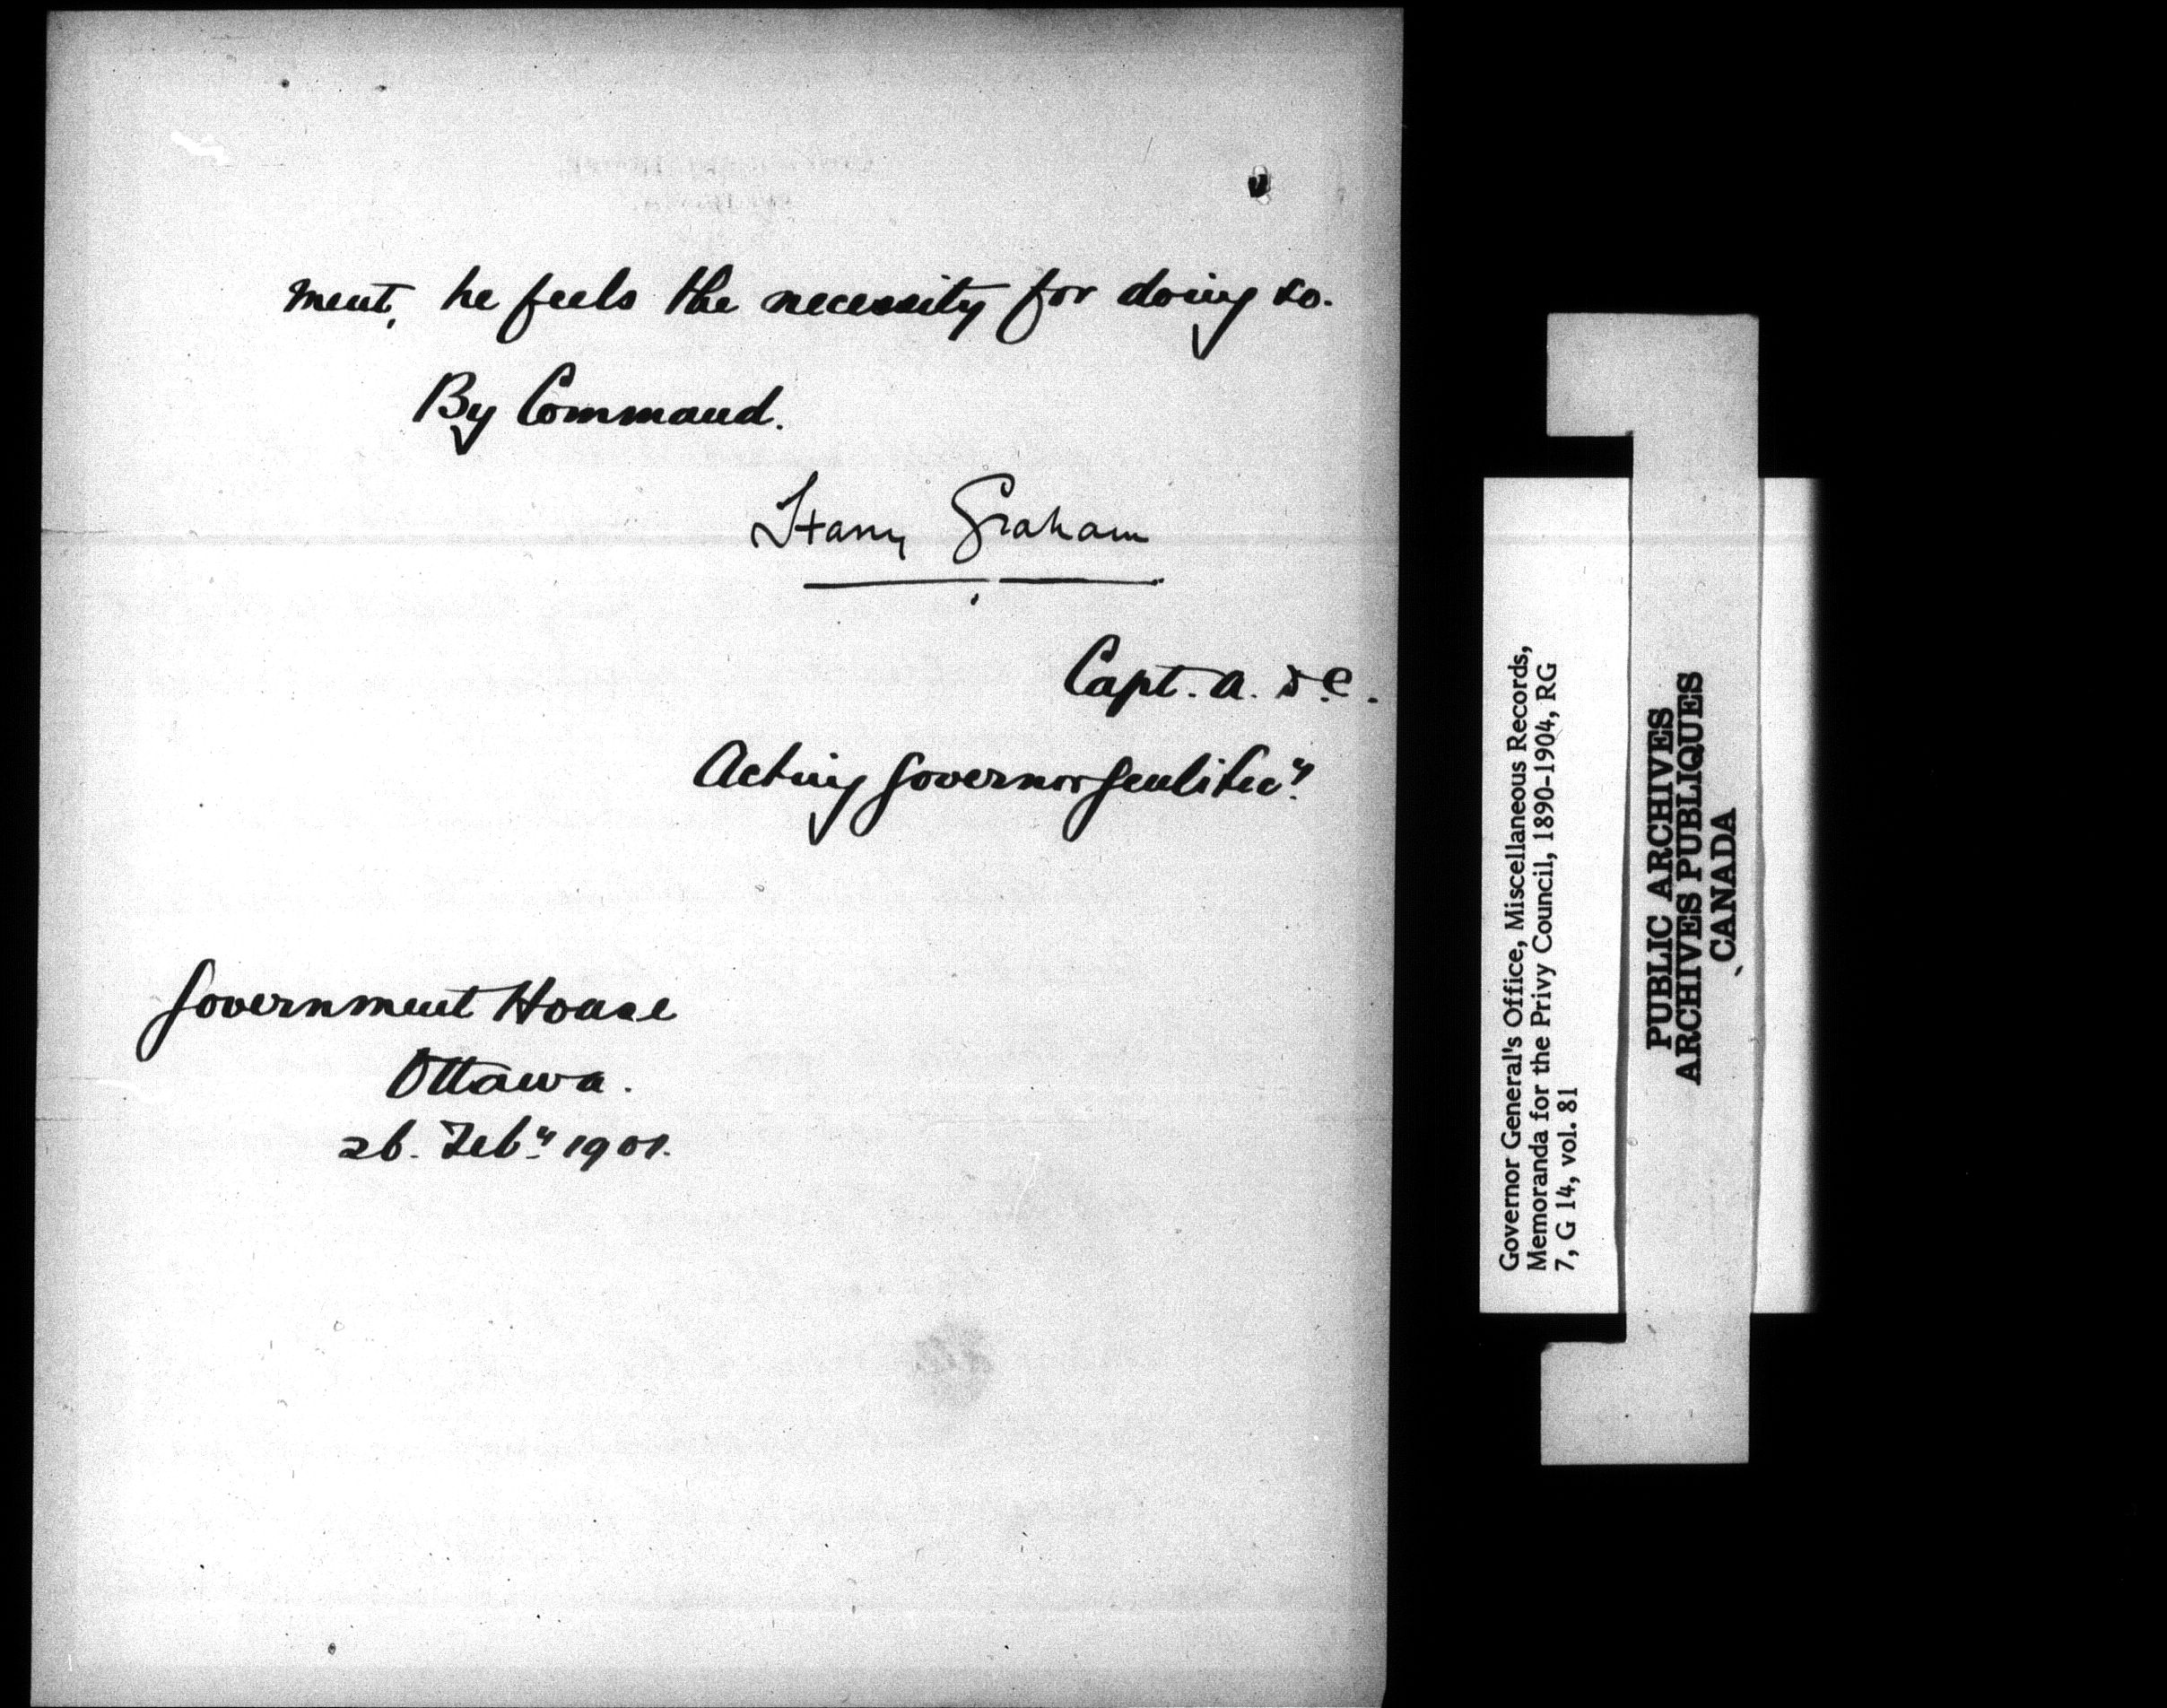 ment, he feels the necessity for doing so.
By Command.
Harry Graham
Capt. A. D. C.
Acting Governor Genl's Secy.
Government House
Ottawa.
26. Feby. 1901.
Governor General's Office, Miscellaneous Records,
Memoranda for the Privy Council, 1890-1904, RG
7, G 14, vol. 81
PUBLIC ARCHIVES
ARCHIVES PUBLIQUES
CANADA